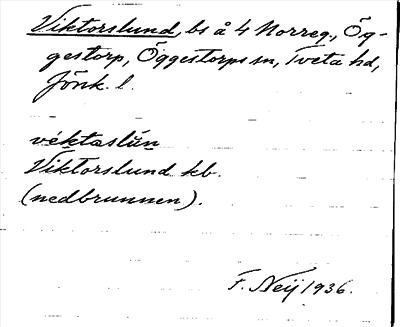 Viktorslund, bs å 4 Norreg., Ög-
gestorp, Öggestorps sn, Tveta hd,
Jönk. l.
véktaslún
Viktorslund kb.
(nedbrunnen).
F. Neij 1936.